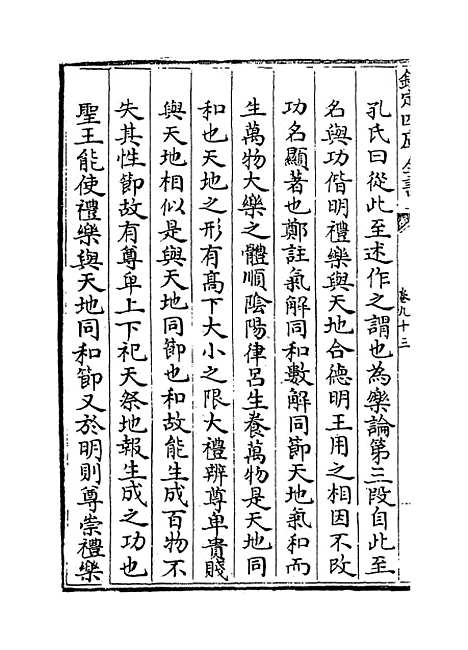 欽定四庫全書
卷九十三
孔氏曰從此至述作之謂也為樂論第三段自此至
名與功偕明禮樂與天地合德明王用之相因不改
功名顯著也鄭註氣解同和數解同節天地氣和而
生萬物大樂之體順陰陽律呂生養萬物是天地同
和也天地之形有髙下大小之限大禮辨尊卑貴賤
與天地相似是與天地同節也和故能生成百物不
失其性節故有尊卑上下祀天祭地報生成之功也
聖王能使禮樂與天地同和節又於明則尊崇禮樂